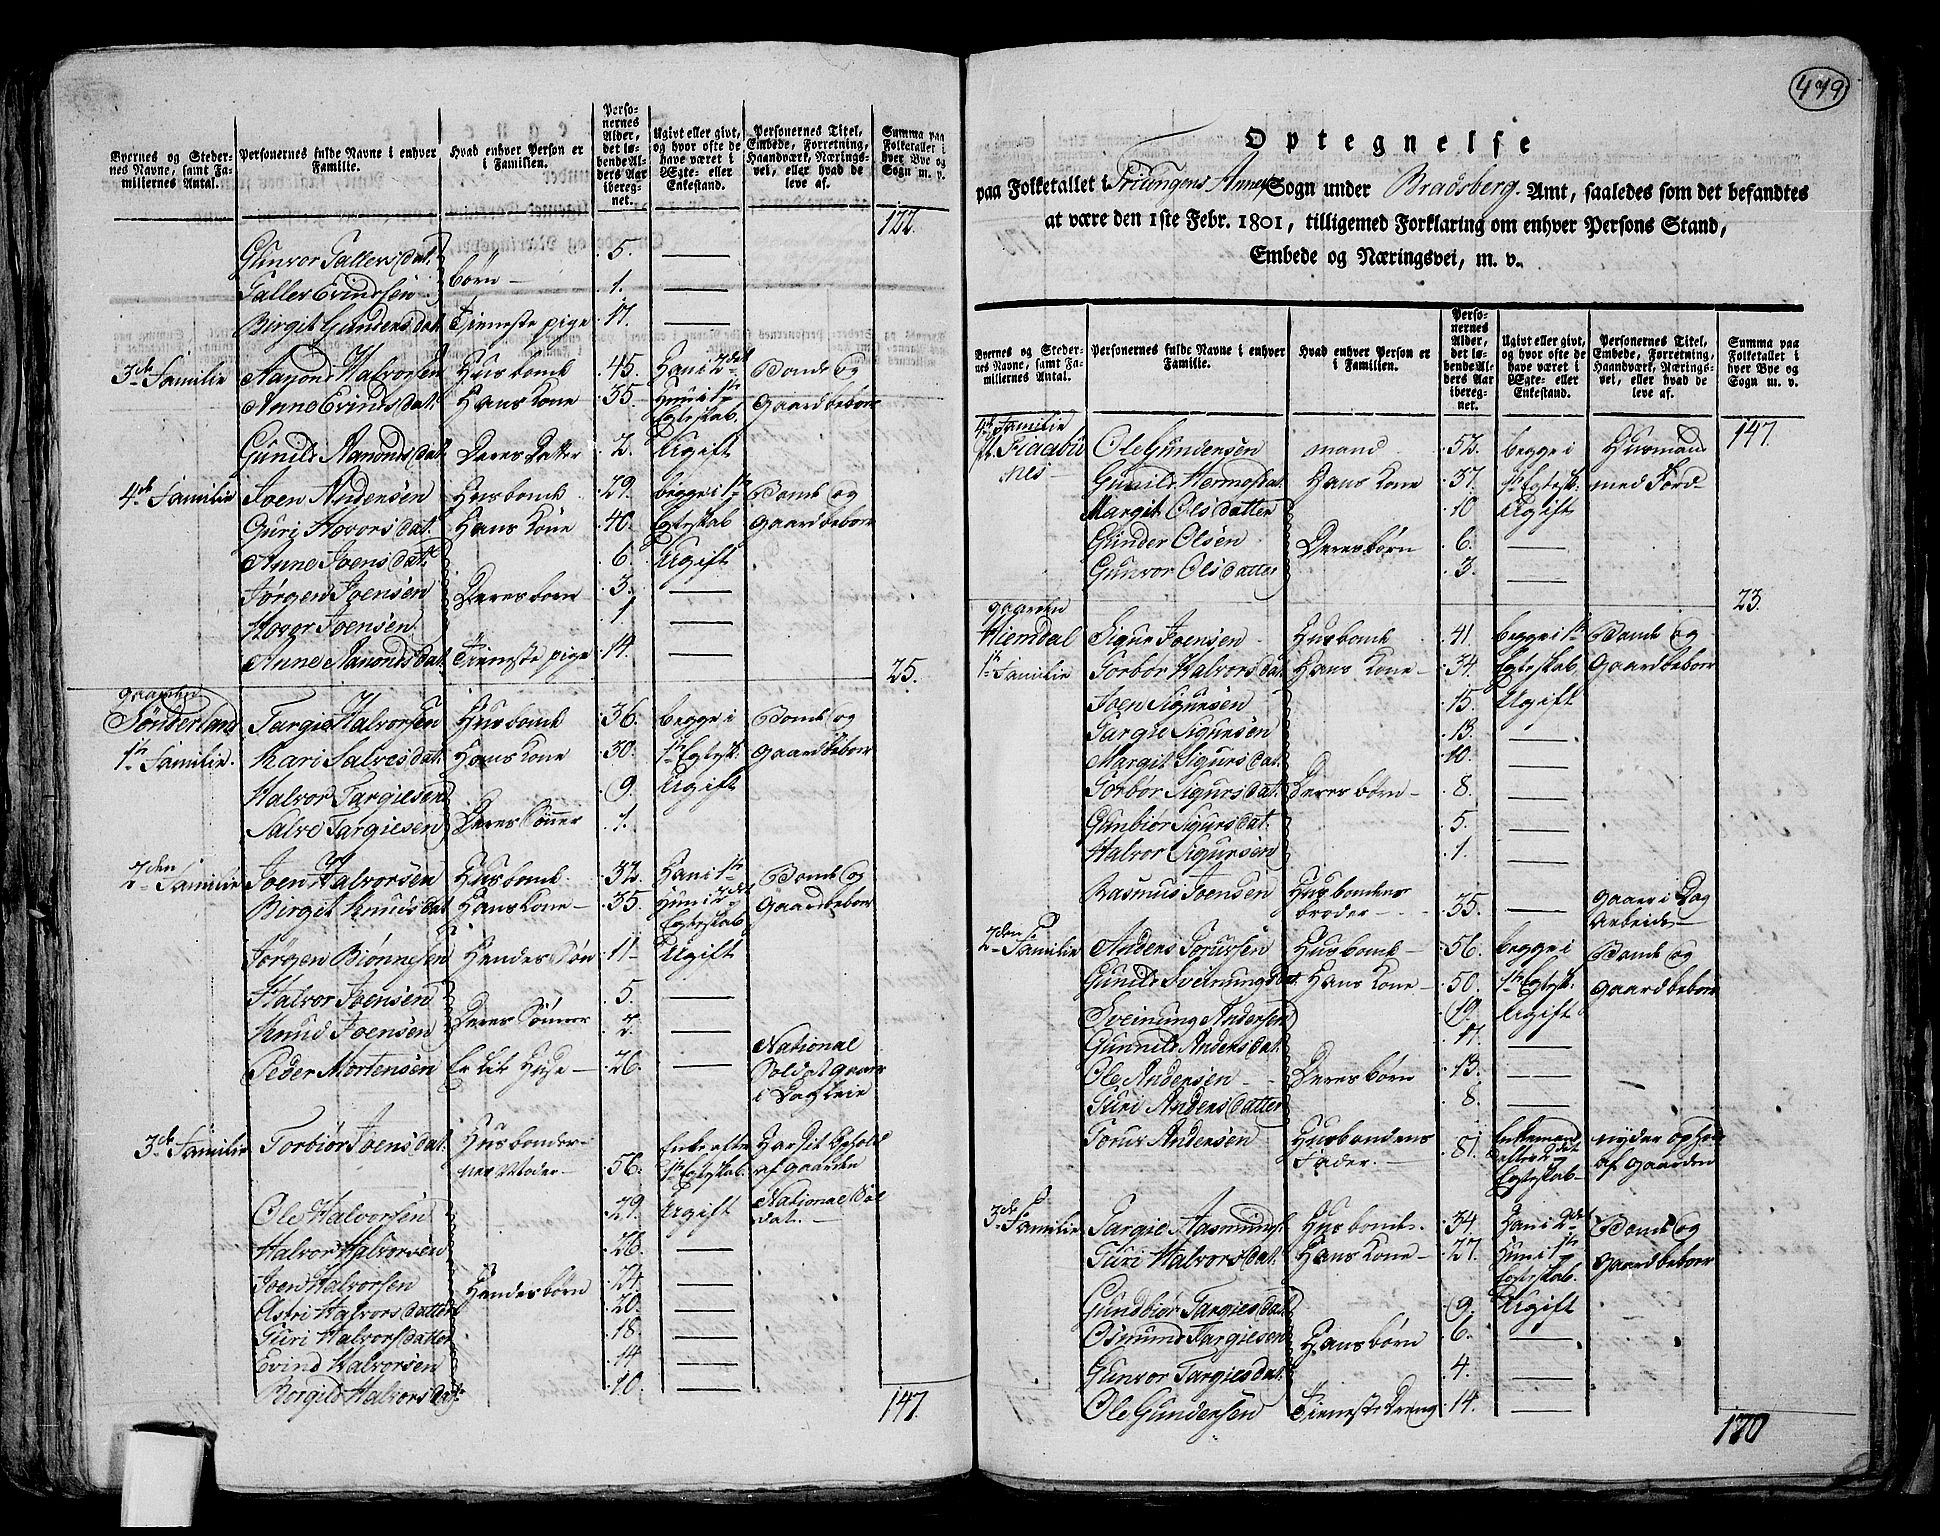 Byernes og Steder-
nes Navne, samt Fa-
miliernes Antal.
Personernes fulde Navne i enhver
Familie.
Hvad enhver Person er
i Familien.
Perso-
nernes
Alder,
det lø-
bende Al-
ders Aar
ibereg-
net.
Ugivt eller givt,
og hvor ofte de
have været i
Ægte- eller
Enkestand.
Personernes Titel,
Embede, Forretning,
Haandværk, Nærings-
vei, eller hvad de
leve af.
Summa paa
Folketallet i
hver Bye og
Sogn m. v.
122.
Gunvor Tallefsdat. 5. —
børn —
Tallef Evindsen 1. —
Birgit Gundersdat. Tieneste pige 17. —
3de Familie Aanond Halvorsen Husbonde 45. Han i 2det Bonde og
Anne Evindsdat. Hans Kone 35. Hun i 1te Gaardbeboer
Egteskab.
Gunild Aanondsdat. Deres Datter 2. Ugift
4de Familie Joen Andersen Husbonde 29. begge i 1te Bonde og
Guri Hovorsdat. Hans Kone 40. Egteskab Gaardbeboer
Anne Joensdat. 6. Ugift
Jørgen Joensen Deres børn 3. —
Hovor Joensen 1 —
Anne Aanondsdat. Tieneste pige 14. —
25.
gaarden
Sønderland Targie Halvorsen Husbonde 36. begge i Bonde og
1te Familie. Kari Salvesdat. Hans Kone 30. 1te Egtesk. Gaardbeboer
Halvor Targiesen 9. Ugift
Salve Targiesen Deres Sønner 1. —
2den Familie Joen Halvorsen Husbonde 32. Han i 1te Bonde og
Birgit Knudsdat. Hans Kone — 35. Hun i 2det Gaardbeboer
Egteskab
Jørgen Biønnesen Hendes Søn 11 Ugift
Halvor Joensen 5. —
Knud Joensen Deres Sønner 2. —
Peder Mortensen 26. — National
Soldat
i Dagleie
3de Familie Torbiør Joensdat. Husbonder-
nes Moder — 56. Enke efter Har sit Ophold
1te Egteskab. af gaarden
Ole Halvorsen 29. Ugift National Sol
dat. —
Halvor Halvorsen 26. —
Joen Halvorsen 24. —
Hendes børn
Astri Halvorsdatter 20. —
Guri Halvorsdatter 18. —
Evind Halvorsen 14 —
Borgild Halvorsdat. 10. —
147.
479
Optegnelse
paa Folketallet i Triungens Annex Sogn under Bradsberg. Amt, saaledes som det befandtes
at være den 1ste Febr. 1801, tilligemed Forklaring om enhver Persons Stand,
Embede og Næringsvei, m. v.
Byernes og Steder-
nes Navne, samt Fa-
miliernes Antal.
Personernes fulde Navne i enhver
Familie.
Hvad enhver Person er
i Familien.
Perso-
nernes
Alder,
det lø-
bende Al-
ders Aar
ibereg-
net.
Ugivt eller givt,
og hvor ofte de
have været i
Ægte- eller
Enkestand.
Personernes Titel,
Embede, Forretning,
Haandværk, Nærings-
vei, eller hvad de
leve af.
Summa paa
Folketallet i
hver Bye og
Sogn m. v.
4de Familie 147.
Ole Gundersen mand 52. begge i Husmand
Gunild Hermosdat. Hans Kone 37. 1te Egtesk. med Jord
Margit Olsdatter 10 Ugift
Gunder Olsen Deres børn 6. —
Gunvor Olsdatter 3. —
23.
gaarden
Hiemdal Sigur Joensen Husbonde 41. begge i 1te Bonde og
1te Familie Torbør Halvorsdat. Hans Kone — 34. Egteskab. Gaardbeboer
Joen Sigursen 15. Ugift
Targie Sigursen 13. —
Margit Sigursdat. 10. —
Torbør Sigursdat. Deres børn — 8. —
Gunbiør Sigursdat. 5. —
Halvor Sigursen 1. —
Rasmus Joensen Husbondens
broder — 35. — gaaer i Dag
Arbeide —
2den Familie Anders Torussen Husbonde — 56. begge i Bonde og
Gunild Sveinungsdat. Hans Kone — 50. 1te Egtesk. Gaardbeboer
Sveinung Andersen 19. Ugift
Gunnild Andersdat. 17. —
Ole Andersen — Deres børn 13. —
Guri Andersdatter 8. —
Torus Andersen Husbondens
Fader. — 81. Enkemand nyder ophold
efter 2det af gaarden
Egteskab —
3de Familie Targie Aasmunds. Husbonde. 34. Han i 2det Bonde og
Guri Halvorsdat. Hans Kone — 27. Hun i 1te Gaardbeboer
Egteskab.
Gundbiør Targiesdat. 9. Ugift
Osmund Targiesen Hans børn 6. —
Gunvor Targiesdat. 4. —
Ole Gundersen Tieneste Dreng 14. —
170